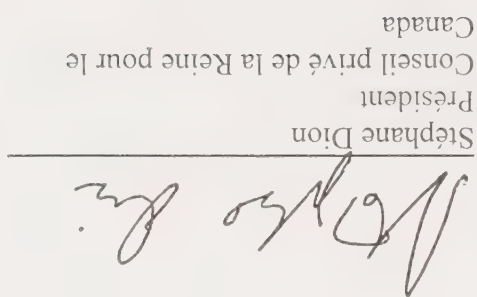 Stéphane Dion
Président
Conseil privé de la Reine pour le
Canada